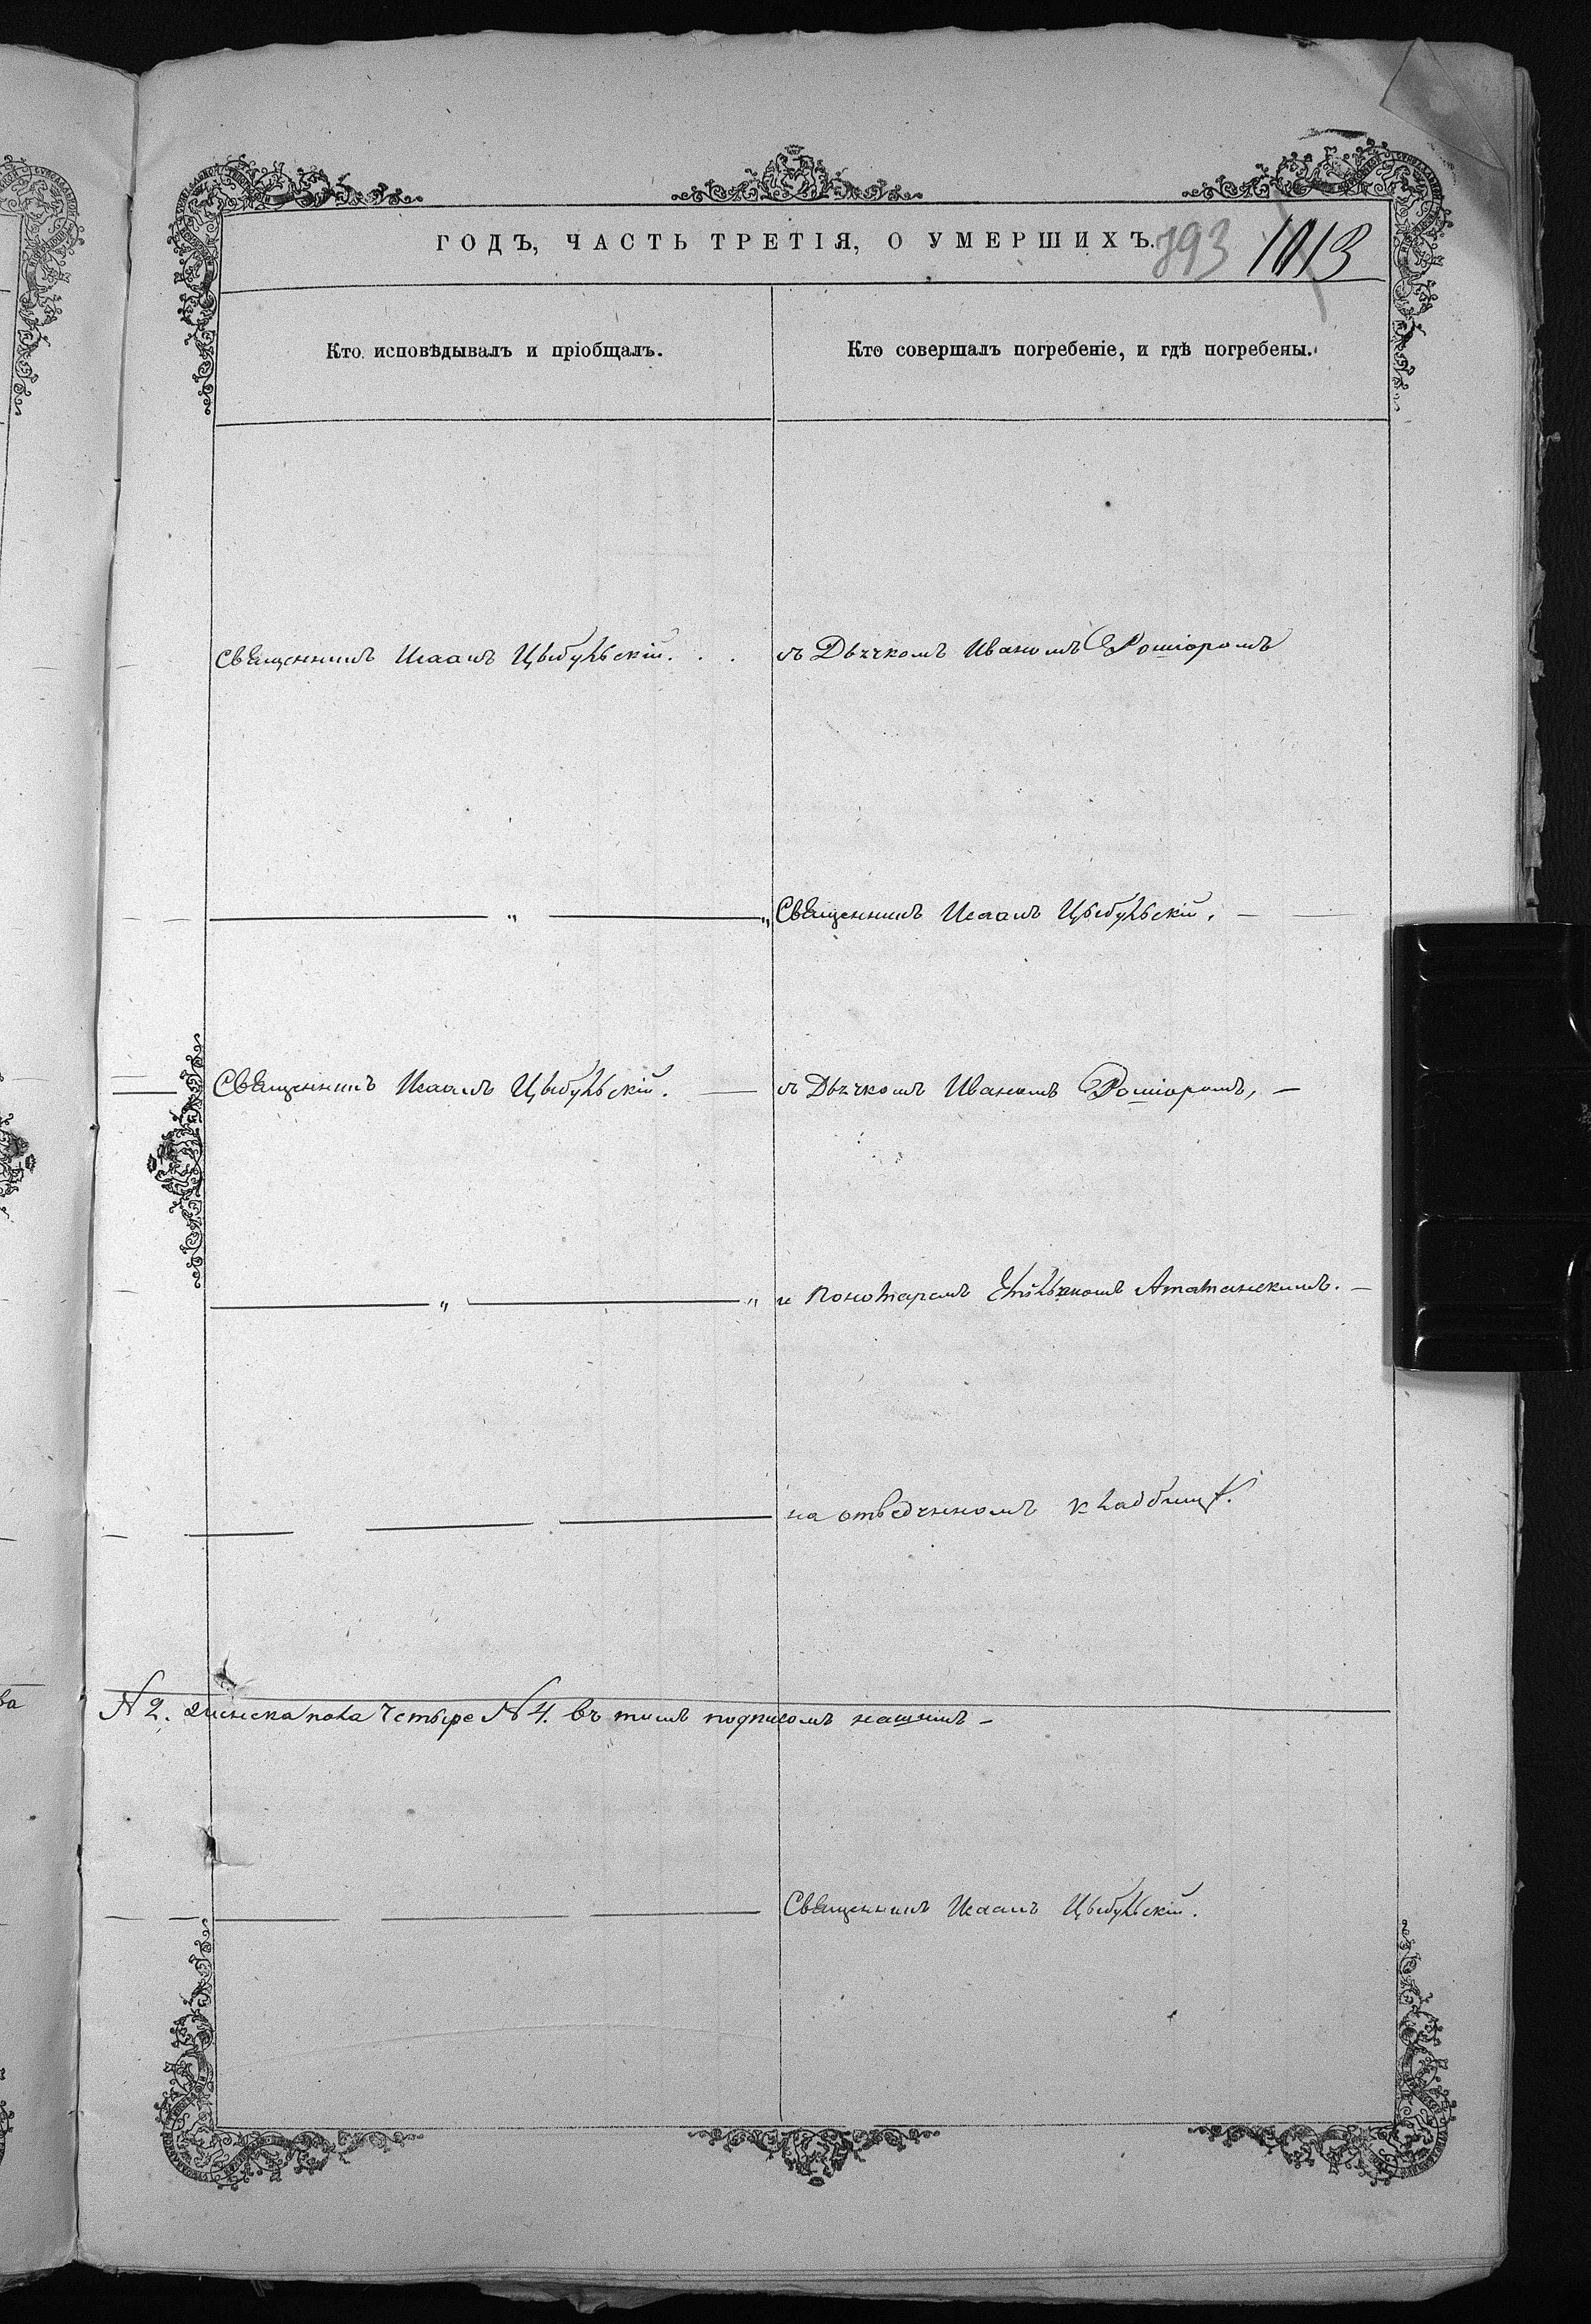 ГОДЪ, ЧАСТЬ ТРЕТІЯ, О УМЕРШИХЪ.
893 1013
Кто исповѣдывалъ и пріобщалъ.
Кто совершалъ погребеніе, и гдѣ погребены.
Священникъ Исаакъ Цыбульскій. . .
съ Дьячкомъ Иваномъ Рошіоромъ
Священникъ Исаакъ Цыбульскій.
Священникъ Исаакъ Цыбульскій.
съ Дьячкомъ Иваномъ Рошіоромъ,
и Пономаремъ
на отведенномъ кладбищѣ.
№ 2. женска пола четыре № 4. въ томъ подписомъ нашимъ
Священникъ Исаакъ Цыбульскій.